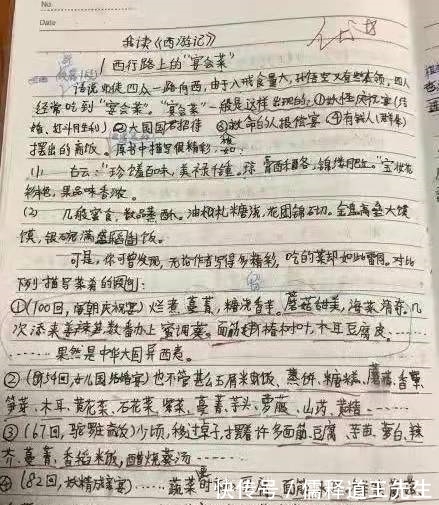 No.
Date
我读《西游记》
1 西行路上的"宴会菜"
话说师徒四众一路向西,由于八戒食量大,孙悟空又有些本领,四人
经常吃到"宴会菜"。"宴会菜"一般是这样出现的,①妖怪庆贺宴(结
婚、打斗胜利) ②大国国君招待 ③救命的人报偿宴 ④有钱人(群众)
摆出的斋饭。原书中描写很精彩,
(1) 古云:"珍馐百味,美禄千钟。琼膏酥酪,锦缕肥红。"宝妆花
彩艳,果品味香浓。
(2) 几般蜜食,数品蒸酥。油札糖浇,花团锦砌。金盘高垒大馒
馍,银碗满盛稻饭。
可是,你可曾发现,无论作者写得多精彩,吃的菜却如此雷同。对比
下列描写菜肴的段例:
①(100回,唐朝庆祝宴)烂煮蔓菁,糖浇香芋。蘑菇甜美,海菜清奇。几
次添来姜辣笋,数番办上蜜调葵。面筋椿树叶,木耳豆腐皮。……
……果然是中华大国异西夷。
②(第54回,女儿国结婚宴)也不管甚么玉屑米饭、蒸饼、糖糕、蘑菇、香蕈、
笋芽、木耳、黄花菜、石花菜、紫菜、蔓菁、芋头、萝菔、山药、黄精……
③(67回,驼罗庄斋饭)少顷,移过桌子,摆着许多面筋、豆腐、芋苗、萝白、辣
芥、蔓菁、香稻米饭,醋烧葵汤……
④(82回,妖精成亲宴)……蔬菜
快传号/儒释道王先生